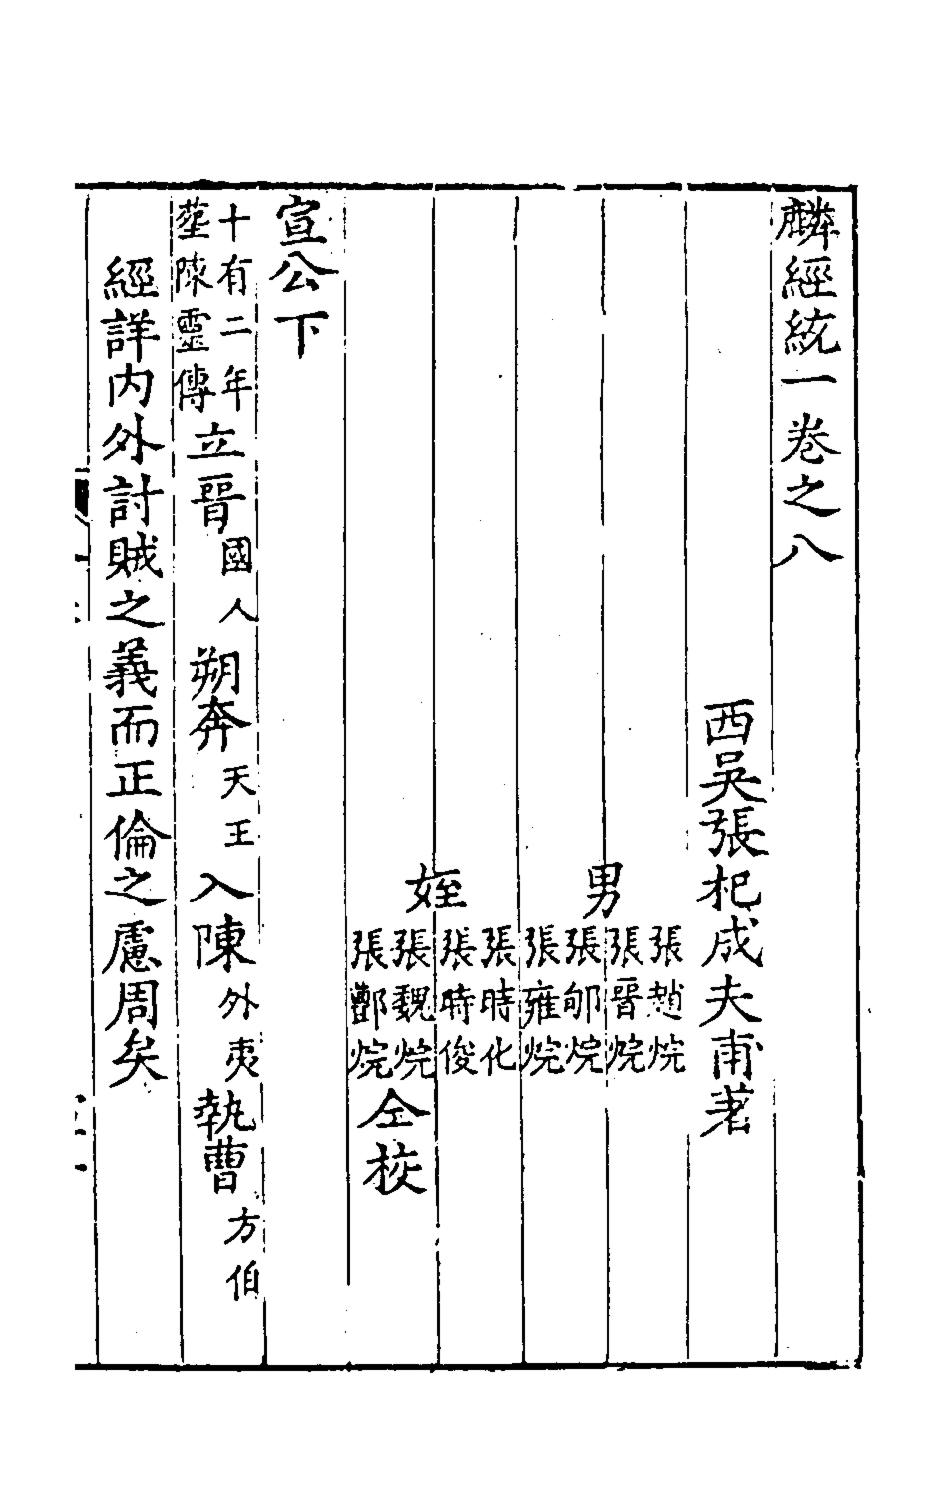 麟經統一卷之八
西吳張杞成夫甫著
男
張趙烷
張晉烷
張郇烷
張雍烷
姪
張時化
張時俊
張魏烷
張酆烷
仝挍
宣公下
十有二年葬陳靈傳立晉國人朔奔天王入陳外夷執曹方伯
經詳內外討賊之義而正倫之慮周矣